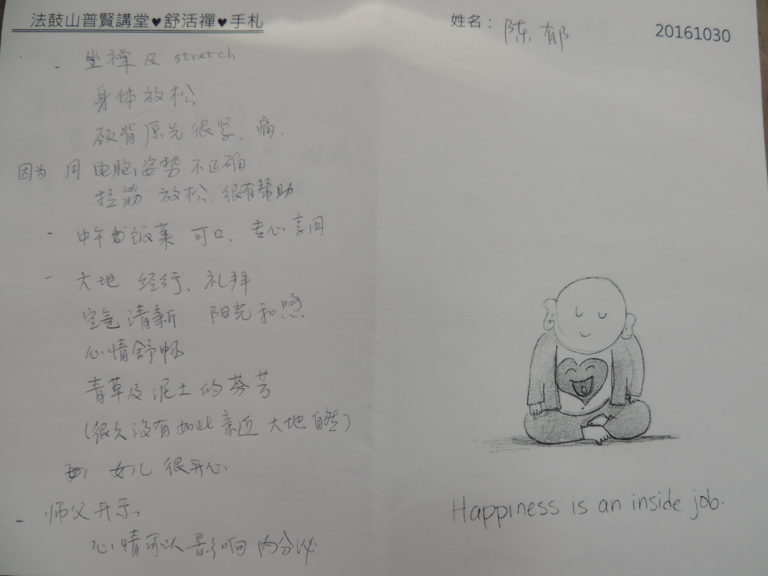 法鼓山普賢講堂♥舒活禪♥手札
姓名：陈郁
20161030
- 坐禅及 stretch
身体放松
颈背原先很紧，痛.
因为 用电脑姿势不正确
拉筋 放松 很有帮助
- 中午 饭菜 可口，专心享用
- 大地 经行、礼拜
空气清新. 阳光和煦
心情舒畅
青草及泥土的芬芳
(很久没有如此亲近大地自然)
女儿很开心
- 师父开示
心情可以影响内分泌
Happiness is an inside job.